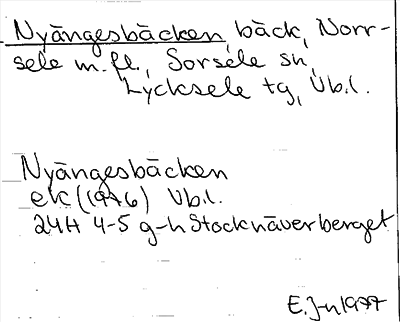 Nyängesbäcken, bäck, Norr-
sele m.fl., Sorsele sn,
Lycksele tg, Vb.l.
Nyängesbäcken
ek (1976) Vb.l.
24H 4-5 g-h Stocknäverberget
E.J-n 1977